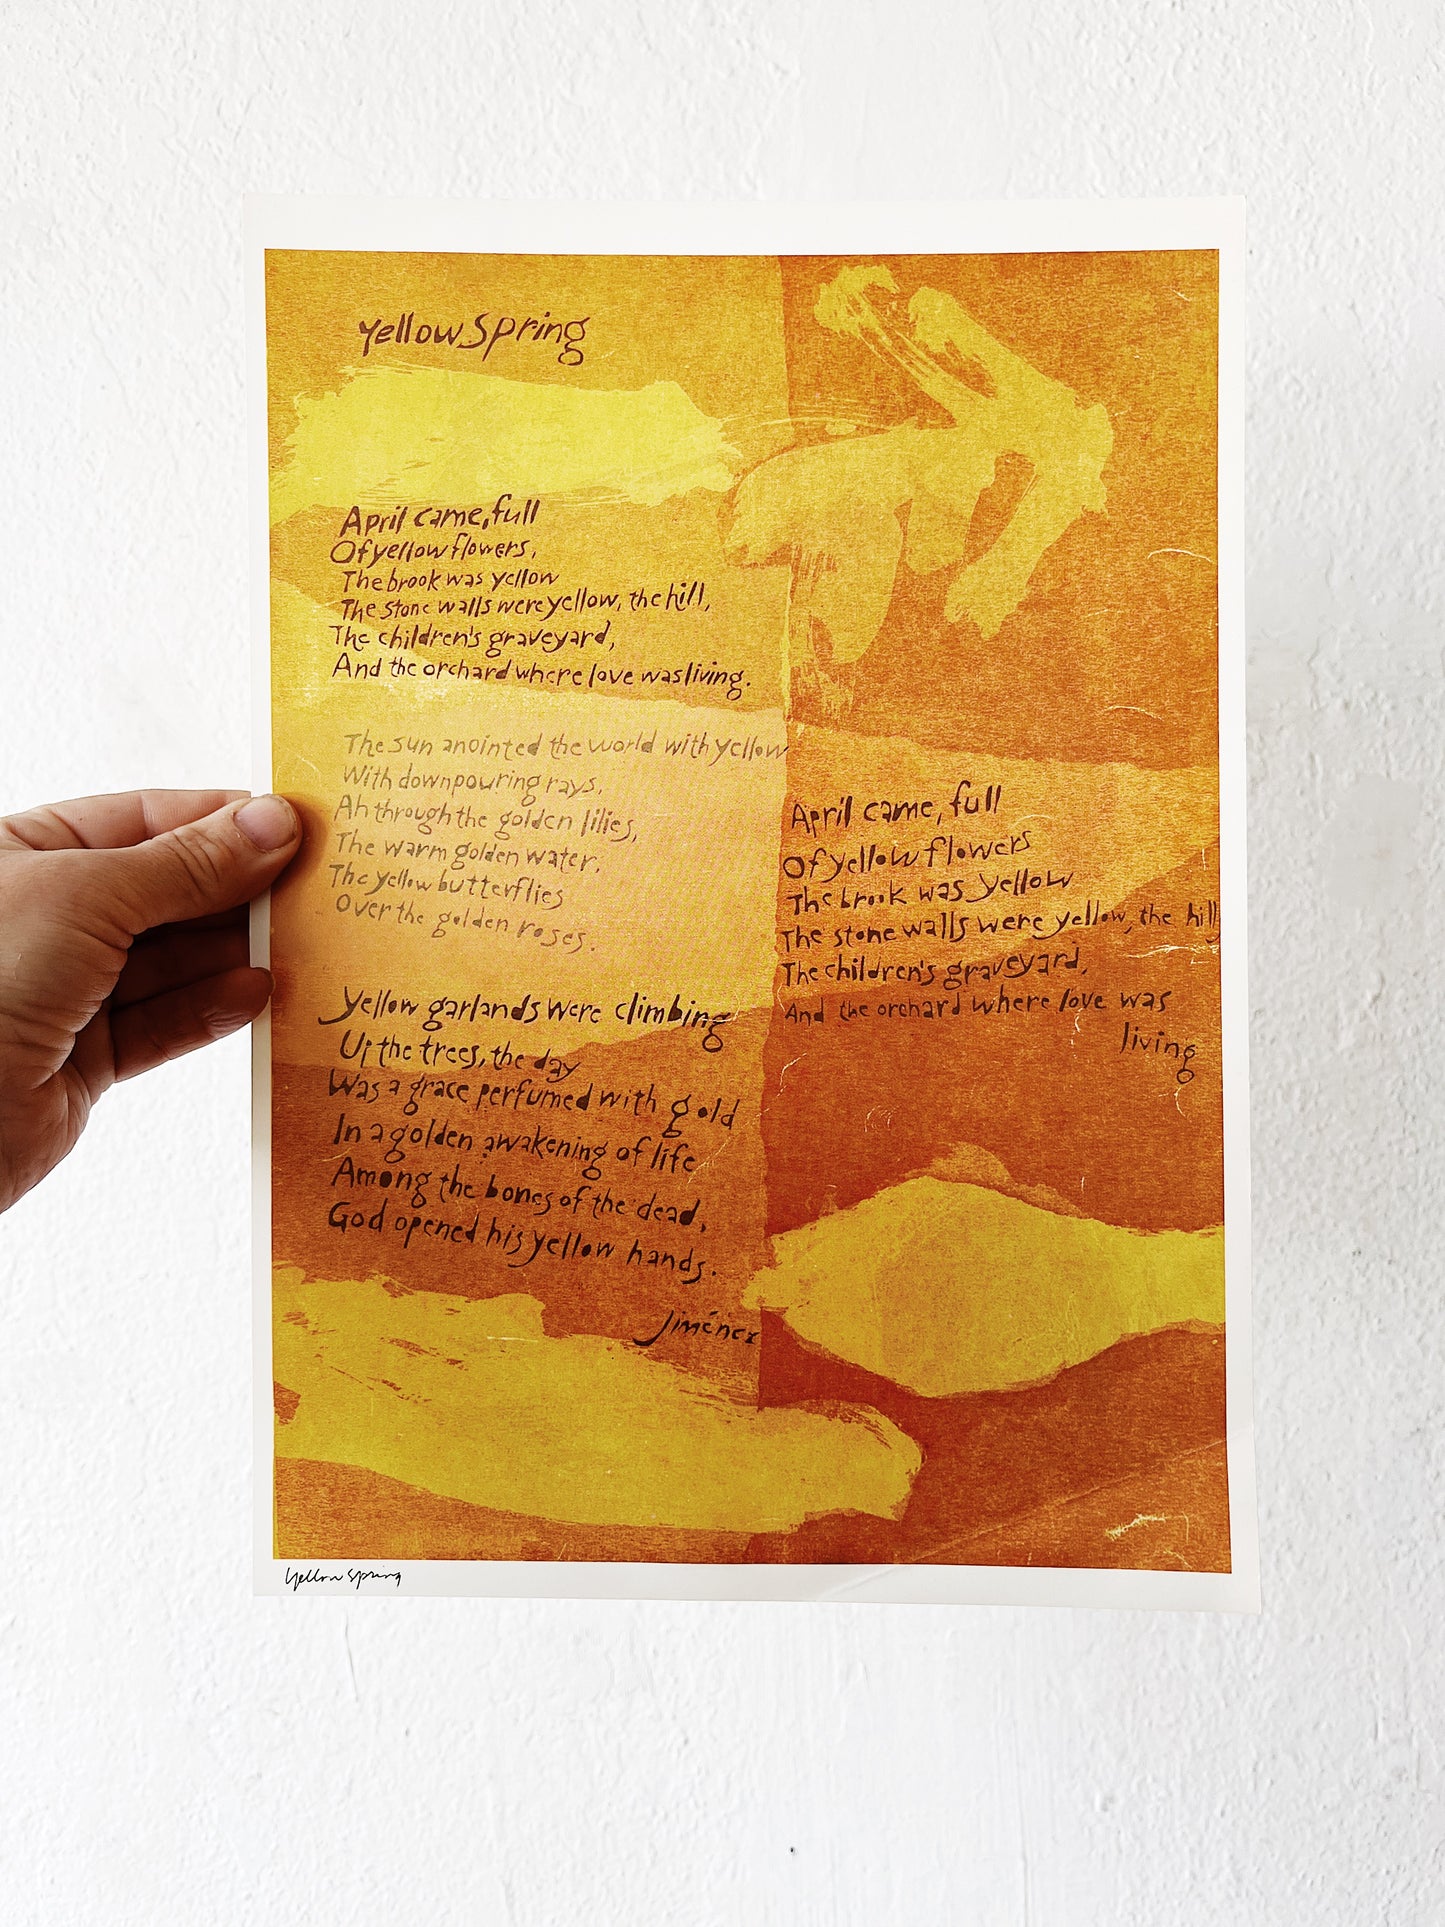 Yellow Spring
April came, full
Of yellow flowers,
The brook was yellow
The stone walls were yellow, the hill,
The children's graveyard,
And the orchard where love was living.
The sun anointed the world with yellow
With downpouring rays,
Ah through the golden lilies,
The warm golden water,
The yellow butterflies
Over the golden roses.
Yellow garlands were climbing
Up the trees, the day
Was a grace perfumed with gold
In a golden awakening of life
Among the bones of the dead,
God opened his yellow hands.
Jiménez
April came, full
Of yellow flowers
The brook was yellow
The stone walls were yellow, the hill,
The children's graveyard,
And the orchard where love was
living
Yellow Spring